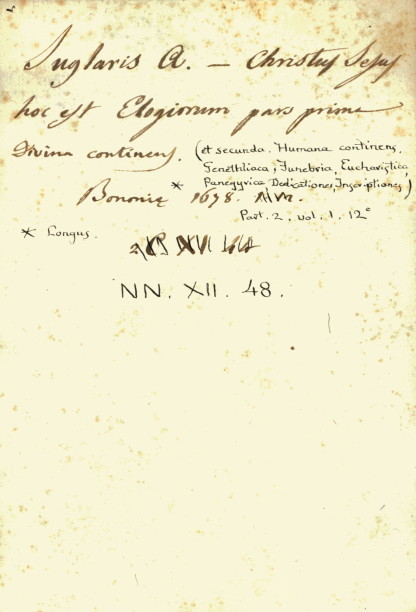 Juglaris A. — Christus Jesus
hoc est Elogiorum pars prima
Divina continens. (et secunda. Humana continens,
Genethliaca, Funebria, Eucharistica,
* Panegyrica Dedicationes, Inscriptiones)
Bononiæ 1678.
Part. 2, vol. 1. 12°
* Longus.
NN. XII. 48.